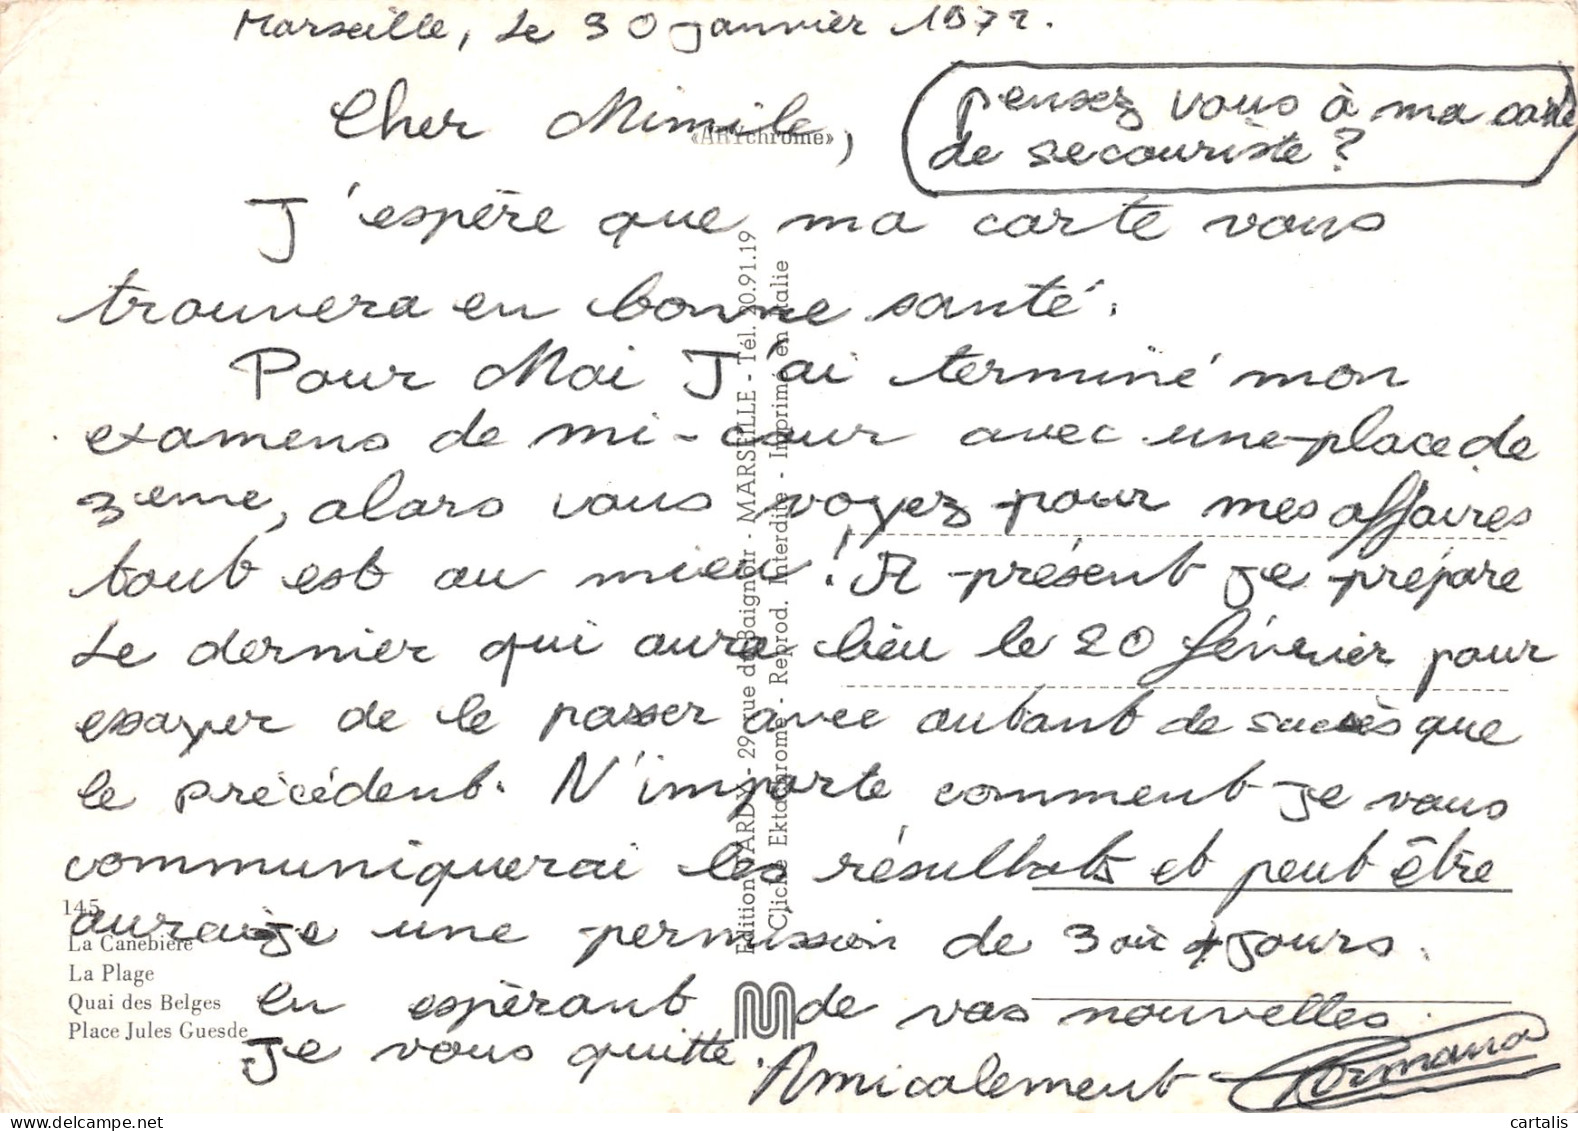 Marseille, le 30 janvier 1972.
Cher Mimile,
pensez vous à ma carte
de secouriste ?
«ARYchrome»
J'espère que ma carte vous
trouvera en bonne santé.
Pour Moi J'ai terminé mon
examens de mi-cour avec une place de
3eme, alors vous voyez pour mes affaires
tout est au mieu ! A présent je prépare
le dernier qui aura lieu le 20 février pour
essayer de le passer avec autant de succès que
le précédent. N'importe comment je vous
communiquerai les résultats et peut être
aurai je une permission de 3 où 4 jours.
En espérant de vos nouvelles
je vous quitte. Amicalement
145
La Canebière
La Plage
Quai des Belges
Place Jules Guesde
Edition YARDY - 29, rue du Baignoir - MARSEILLE - Tél. 20.91.19
Cliché Ektachrome - Reprod. Interdite - Imprimé en Italie
cartalis.com